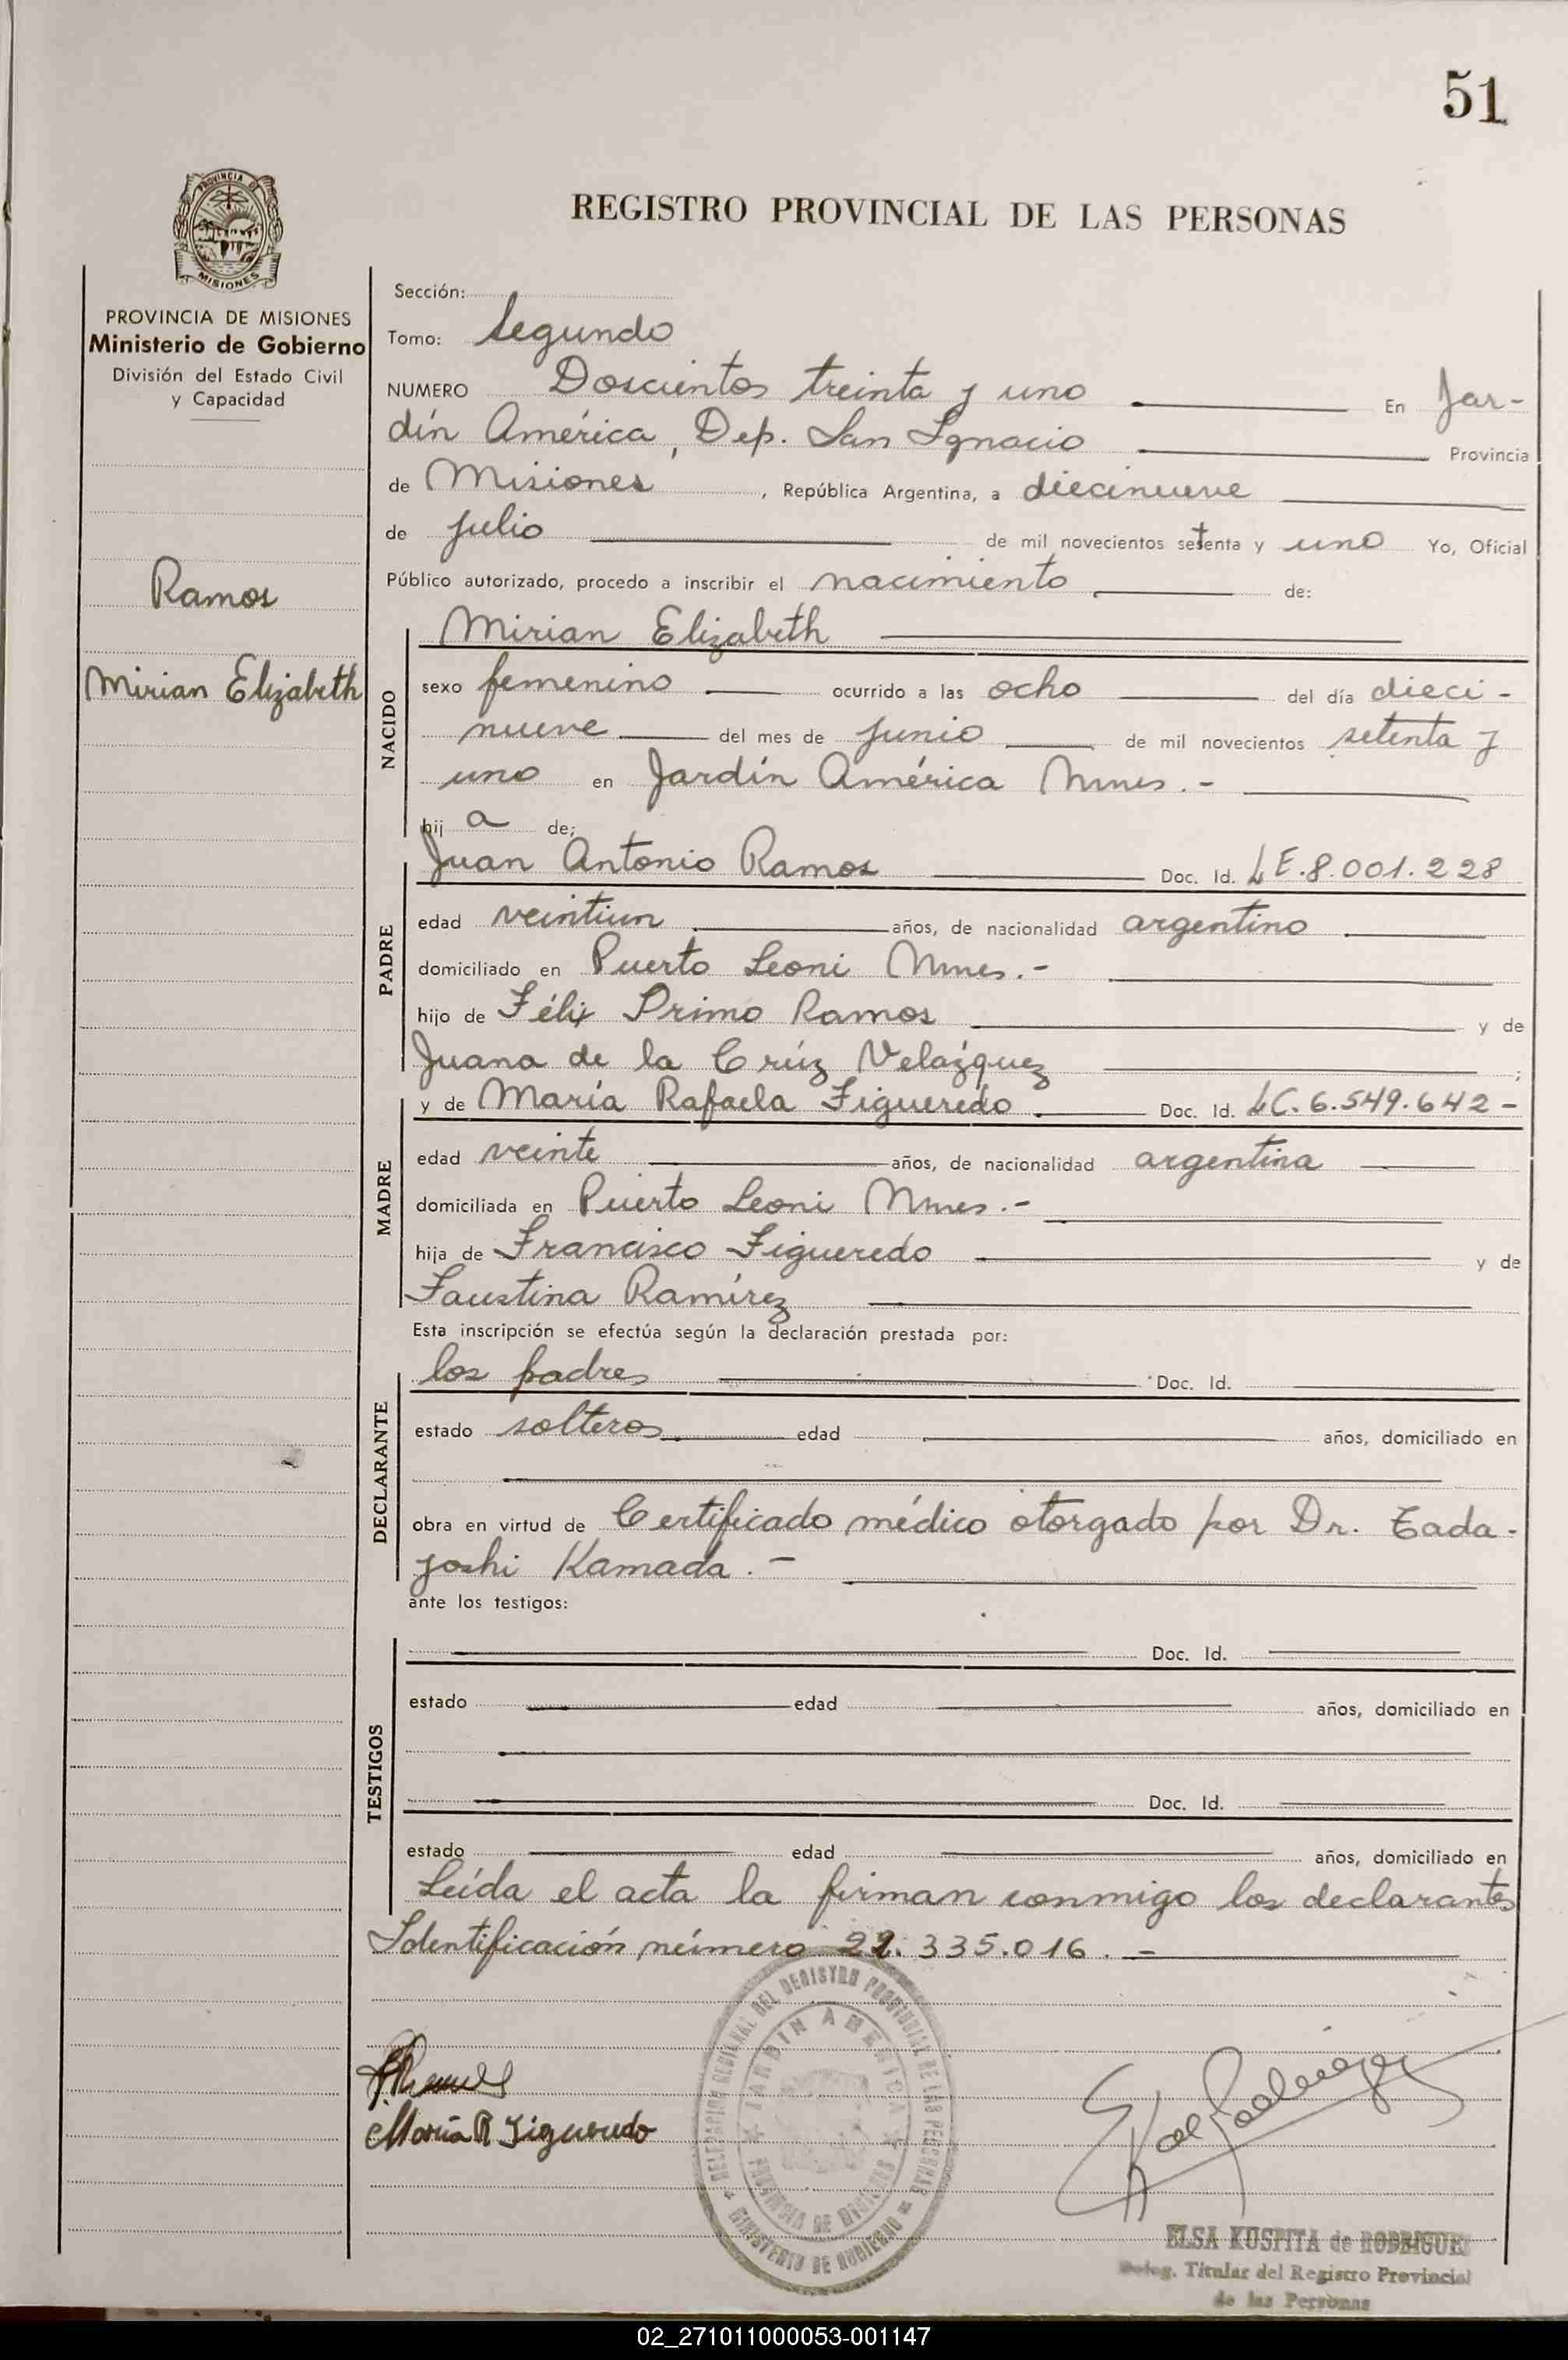 51
PROVINCIA DE
MISIONES
PROVINCIA DE MISIONES
Ministerio de Gobierno
División del Estado Civil
y Capacidad
Ramos
Mirian Elizabeth
REGISTRO PROVINCIAL DE LAS PERSONAS
Sección:
Tomo: Segundo
NUMERO Doscientos treinta y uno En Jar-
dín América, Dep. San Ignacio Provincia
de Misiones, República Argentina, a diecinueve
de julio de mil novecientos setenta y uno Yo, Oficial
Público autorizado, procedo a inscribir el nacimiento de:
NACIDO
Mirian Elizabeth
sexo femenino ocurrido a las ocho del día dieci-
nueve del mes de junio de mil novecientos setenta y
uno en Jardín América Mnes.-
hij a de:
PADRE
Juan Antonio Ramos Doc. Id. LE.8.001.228
edad veintiun años, de nacionalidad argentino
domiciliado en Puerto Leoni Mnes.-
hijo de Félix Primo Ramos y de
Juana de la Crúz Velazquez ;
MADRE
y de María Rafaela Figueredo Doc. Id. LC.6.549.642-
edad veinte años, de nacionalidad argentina
domiciliada en Puerto Leoni Mnes.-
hija de Francisco Figueredo y de
Faustina Ramírez
Esta inscripción se efectúa según la declaración prestada por:
DECLARANTE
los padres Doc. Id.
estado solteros edad años, domiciliado en
obra en virtud de Certificado médico otorgado por Dr. Tada-
yoshi Kamada.-
ante los testigos:
TESTIGOS
Doc. Id.
estado edad años, domiciliado en
Doc. Id.
estado edad años, domiciliado en
Leída el acta la firman conmigo los declarantes
Identificación número 22.335.016.-
DELEGACION REGIONAL DEL REGISTRO PROVINCIAL DE LAS PERSONAS
JARDIN AMERICA
PROVINCIA DE MISIONES
MINISTERIO DE GOBIERNO
María R Figueredo
ELSA KUSPITA de RODRIGUEZ
Deleg. Titular del Registro Provincial
de las Personas
02_271011000053-001147